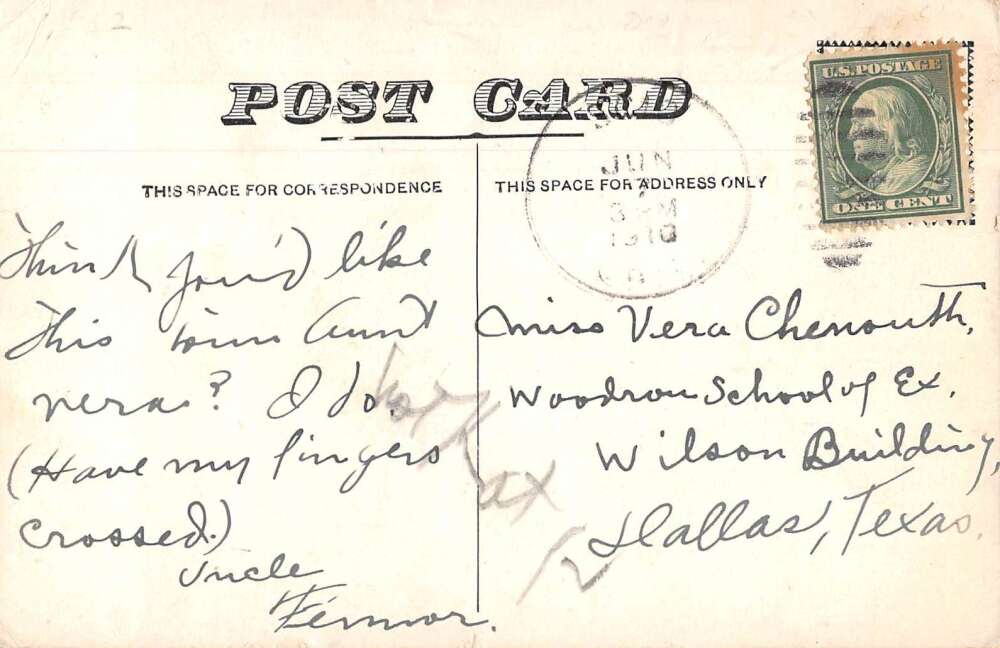 POST CARD
THIS SPACE FOR CORRESPONDENCE
THIS SPACE FOR ADDRESS ONLY
U.S. POSTAGE
ONE CENT
JUN
7
3 PM
1910
Think you'd like
this town Aunt
Vera? I do.
(Have my fingers
crossed.)
Uncle
Miss Vera Chenouth,
Woodrow School of Ex.
Wilson Building,
Dallas, Texas.